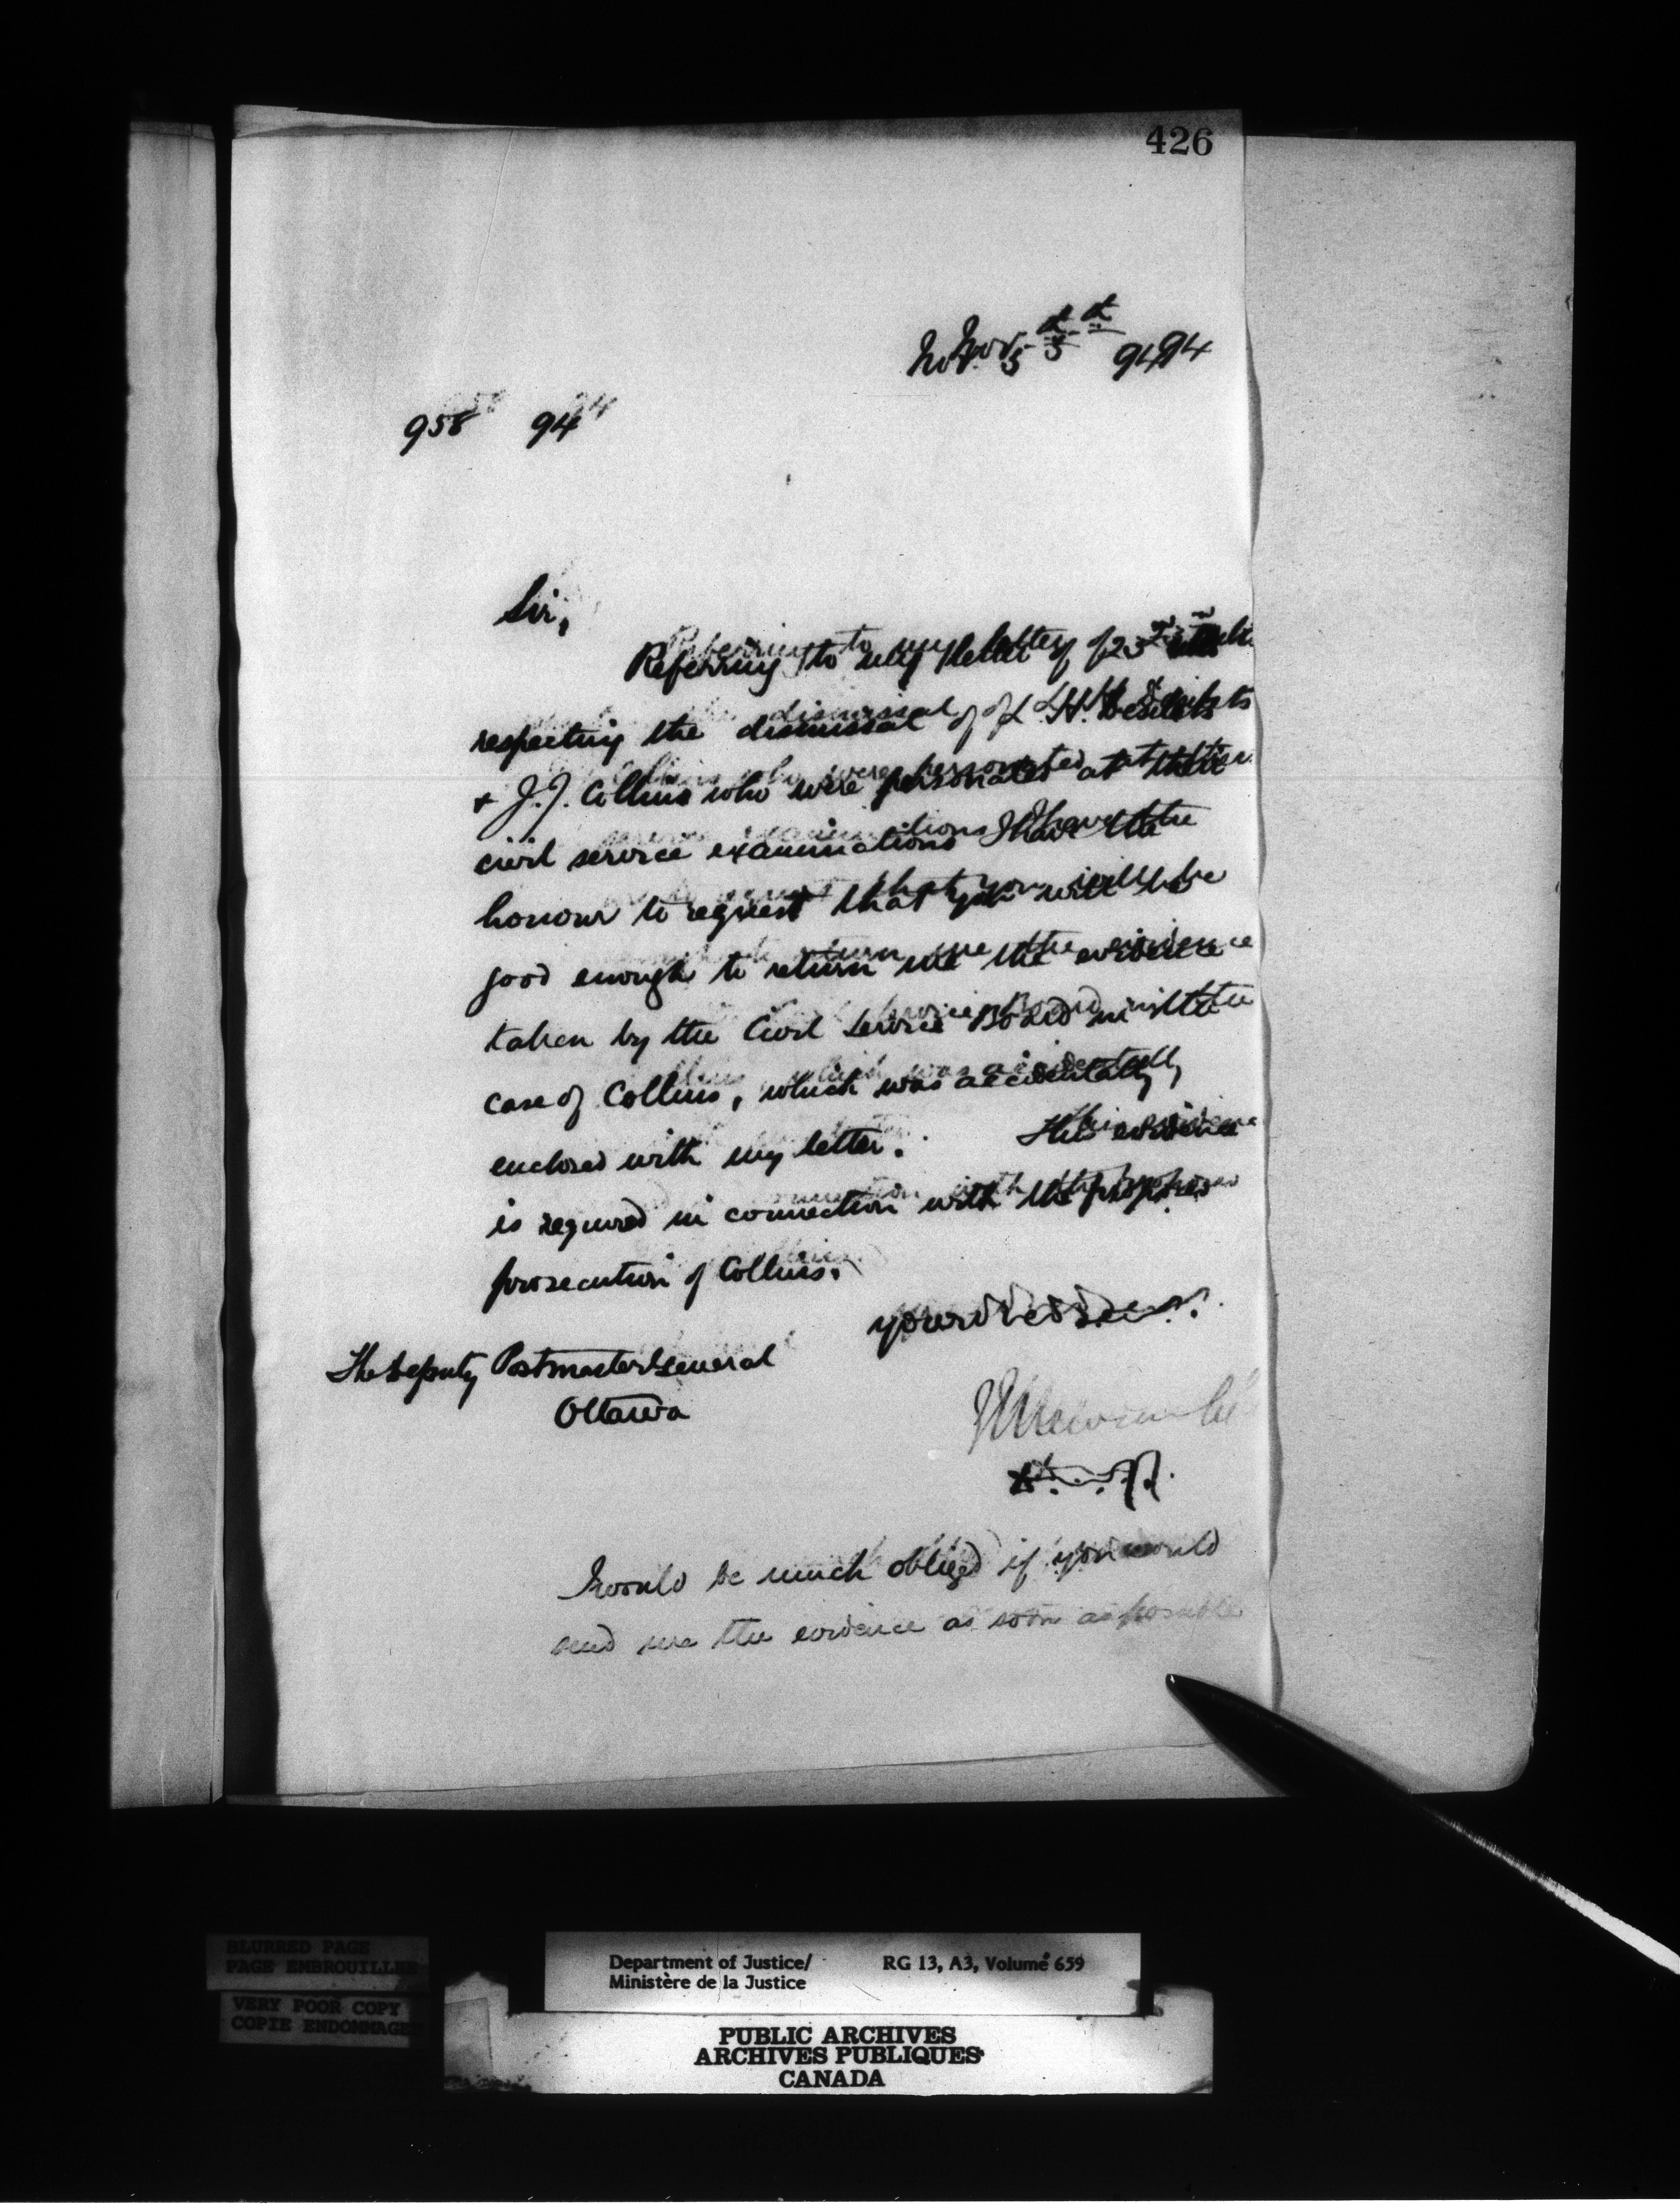 426
Nov. 5th 94
958 94
Sir,
Referring to my letter of 23rd
respecting the dismissal of L. H.
& J. J. Collins who were personated at their
civil service examinations I have the
honour to request that you will be
good enough to return me the evidence
taken by the Civil Service Board in the
case of Collins, which was accidentally
enclosed with my letter. This evidence
is required in connection with the proposed
prosecution of Collins.
The Deputy Postmaster General
Ottawa
I would be much obliged if you would
send me the evidence as soon as possible
BLURRED PAGE
PAGE EMBROUILLEE
VERY POOR COPY
COPIE ENDOMMAGE
Department of Justice/ RG 13, A3, Volume 659
Ministère de la Justice
PUBLIC ARCHIVES
ARCHIVES PUBLIQUES
CANADA